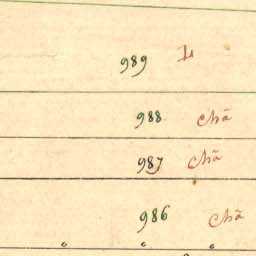 989 L
988 Chã
987 Chã
986 Chã